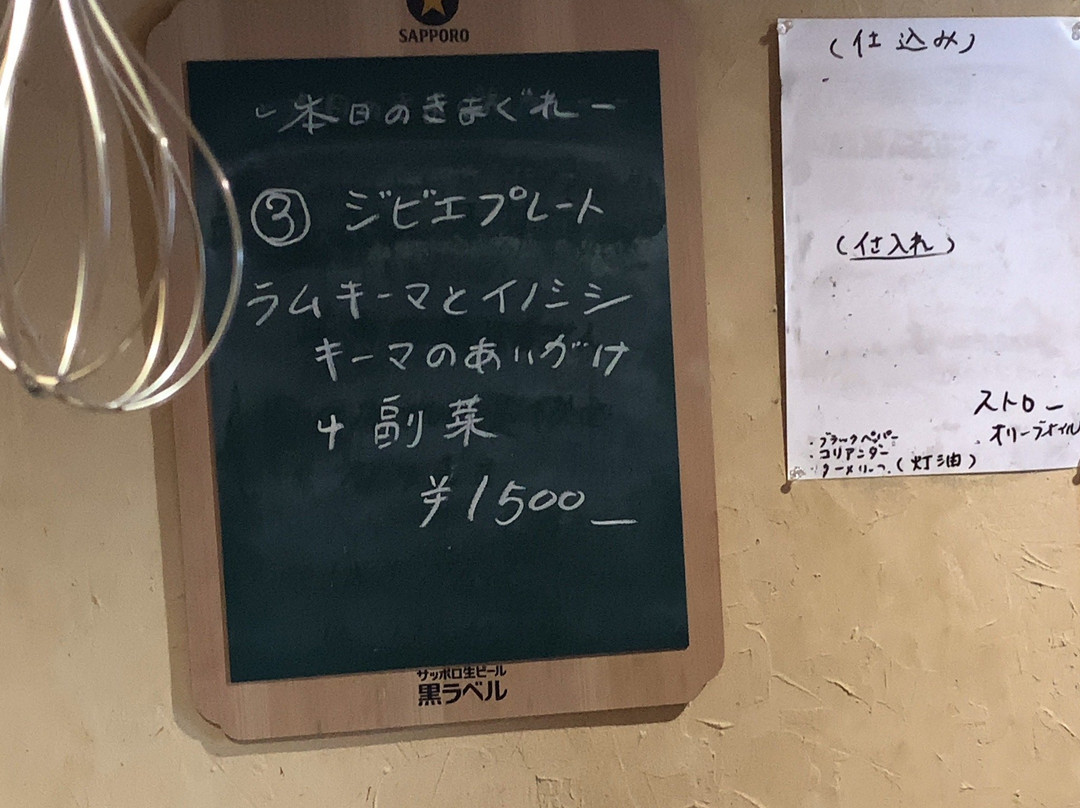 SAPPORO
~本日のきまぐれー
③ ジビエプレート
ラムキーマとイノシシ
キーマのあいがけ
+ 副菜
¥1500_
サッポロ生ビール
黒ラベル
(仕込み)
(仕入れ)
ストロー
オリーブオイル
・ブラックペパー
・コリアンダー
・ターメリック (灯油)